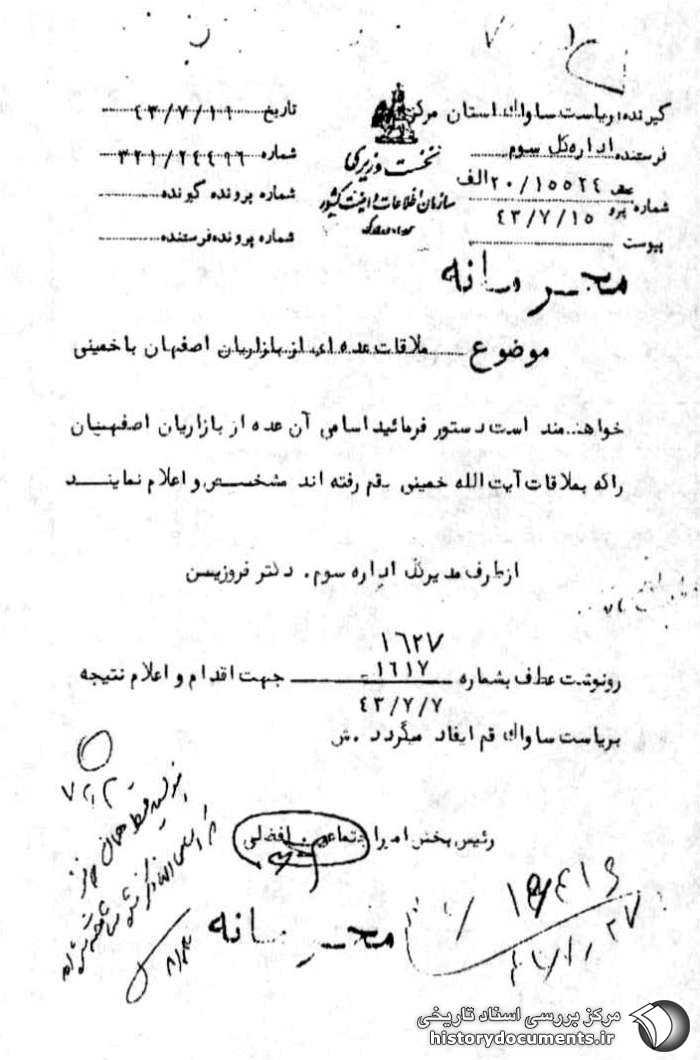 گیرنده: ریاست ساواک استان مرکز
فرستنده اداره کل سوم
عطف ۲۰/۱۵۵۲۴ الف
شماره
۴۳/۷/۱۵
پیوست
نخست وزیری
سازمان اطلاعات و امنیت کشور
تاریخ ۴۳/۷/۱۹
شماره ۳۲۱/۲۴۴۹۶
شماره پرونده گیرنده
شماره پرونده فرستنده
محرمانه
موضوع ملاقات عده ای از بازاریان اصفهان با خمینی
خواهشمند است دستور فرمائید اسامی آن عده از بازاریان اصفهان
را که بملاقات آیت الله خمینی بقم رفته اند مشخص و اعلام نمایند
از طرف مدیرکل اداره سوم. دکتر فروزین
۱۶۲۷
رونوشت عطف بشماره ۱۶۱۷ جهت اقدام و اعلام نتیجه
۴۳/۷/۷
بریاست ساواک قم ایفاد میگردد. ش
رئیس بخش امور اجتماعی. افضلی
محرمانه
مرکز بررسی اسناد تاریخی
historydocuments.ir